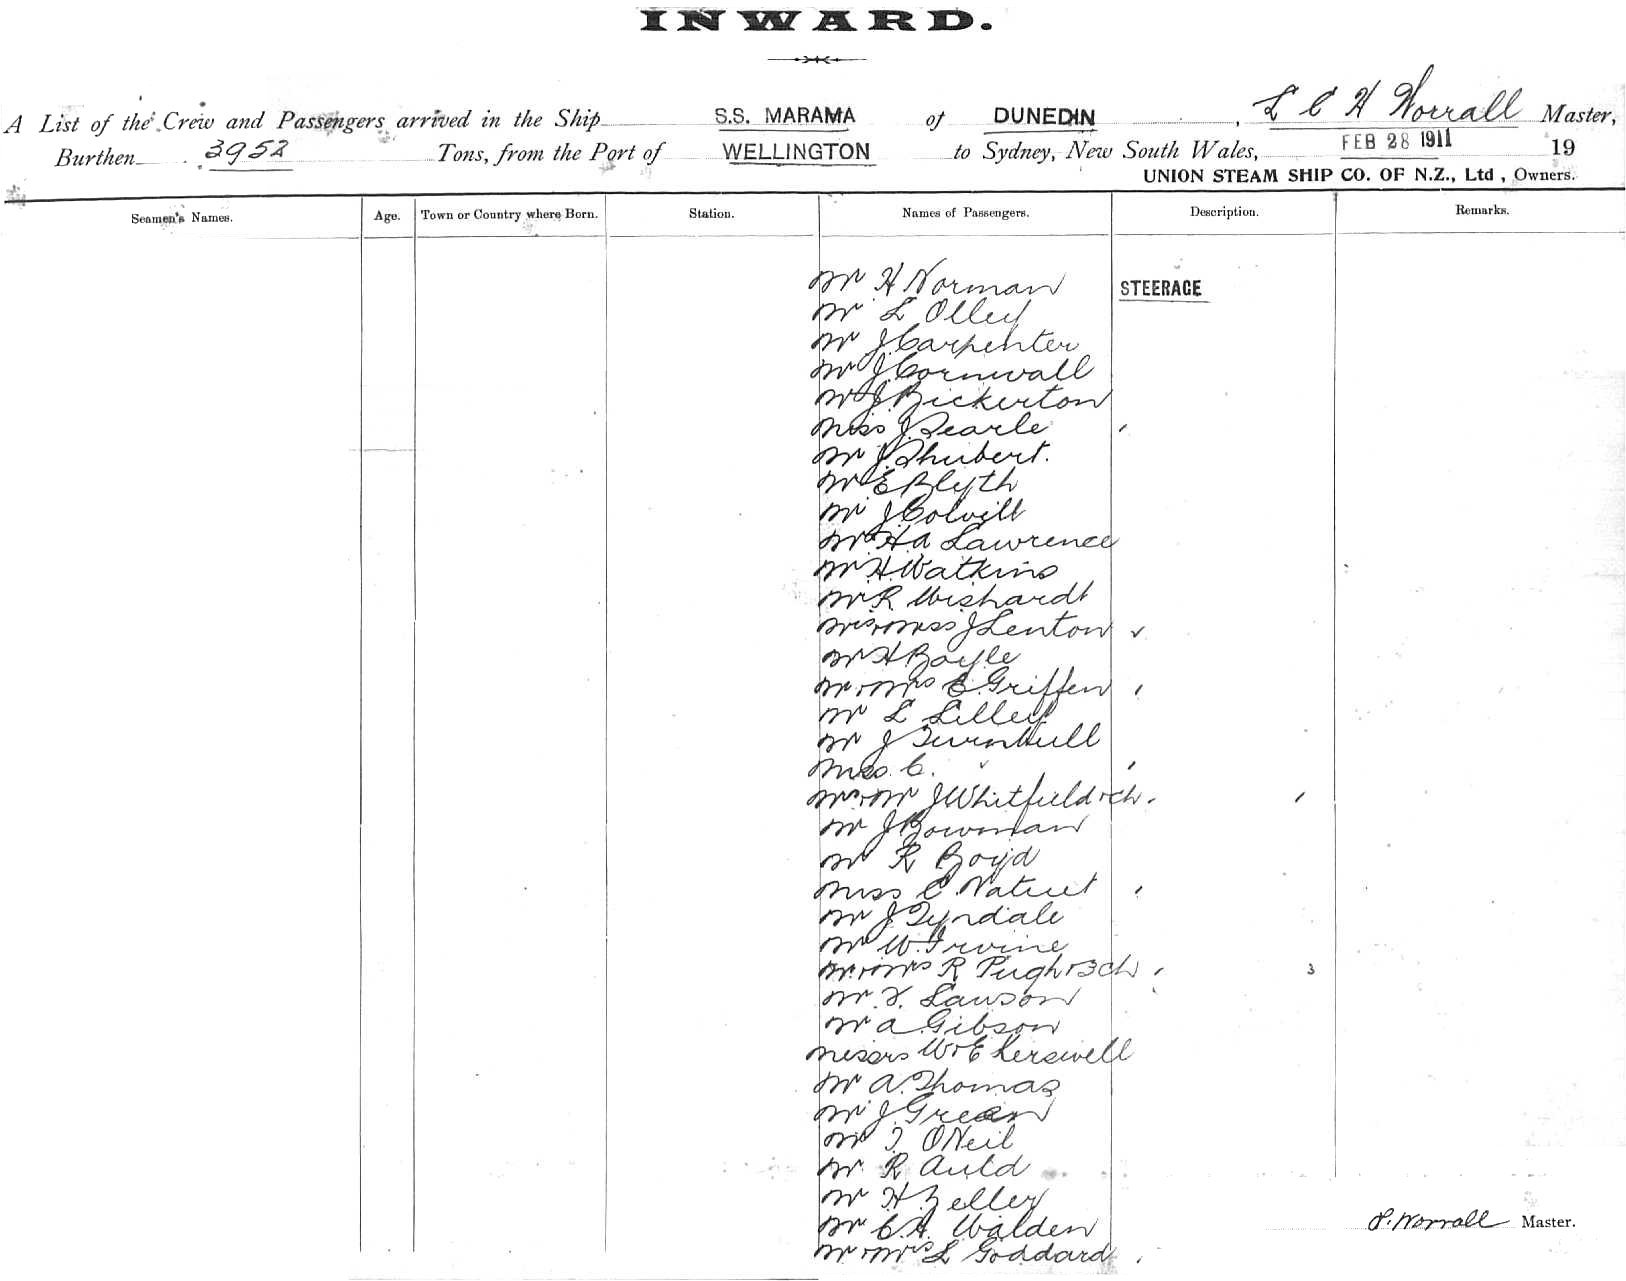 INWARD.
A List of the Crew and Passengers arrived in the Ship S.S. MARAMA of DUNEDIN, L C H Worrall Master,
Burthen 3952 Tons, from the Port of WELLINGTON to Sydney, New South Wales, FEB 28 1911 19
UNION STEAM SHIP CO. OF N.Z., Ltd, Owners.
Seamen's Names. Age. Town or Country where Born. Station. Names of Passengers. Description. Remarks.
Mr H Norman STEERAGE
Mr L Olley
Mr J Carpenter
Mr J Cornwall
Mr J Bickerton
Miss J Searle
Mr J Shubert.
Mr E Blyth
Mr J Colvill
Mr H A Lawrence
Mr H Watkins
Mr R Wishardt
Mrs + Miss J Lenton
Mr H Boyle
Mr + Mrs E Griffen
Mr L Lilley
Mr J Turnbull
Miss C. "
Mrs + Mr J Whitfield + ch.
Mr J Bowman
Mr R Boyd
Miss C
Mr J Tyndale
Mr W Irvine
Mr + Mrs R Pugh + 3 ch 3
Mr Lawson
Mr A Gibson
Messrs W + E Kerswell
Mr A. Thomas
Mr J Green
Mr T ONeil
Mr R Auld
Mr H Zeller
Mr C. H. Walden
Mr + Mrs L Goddard
Worrall Master.